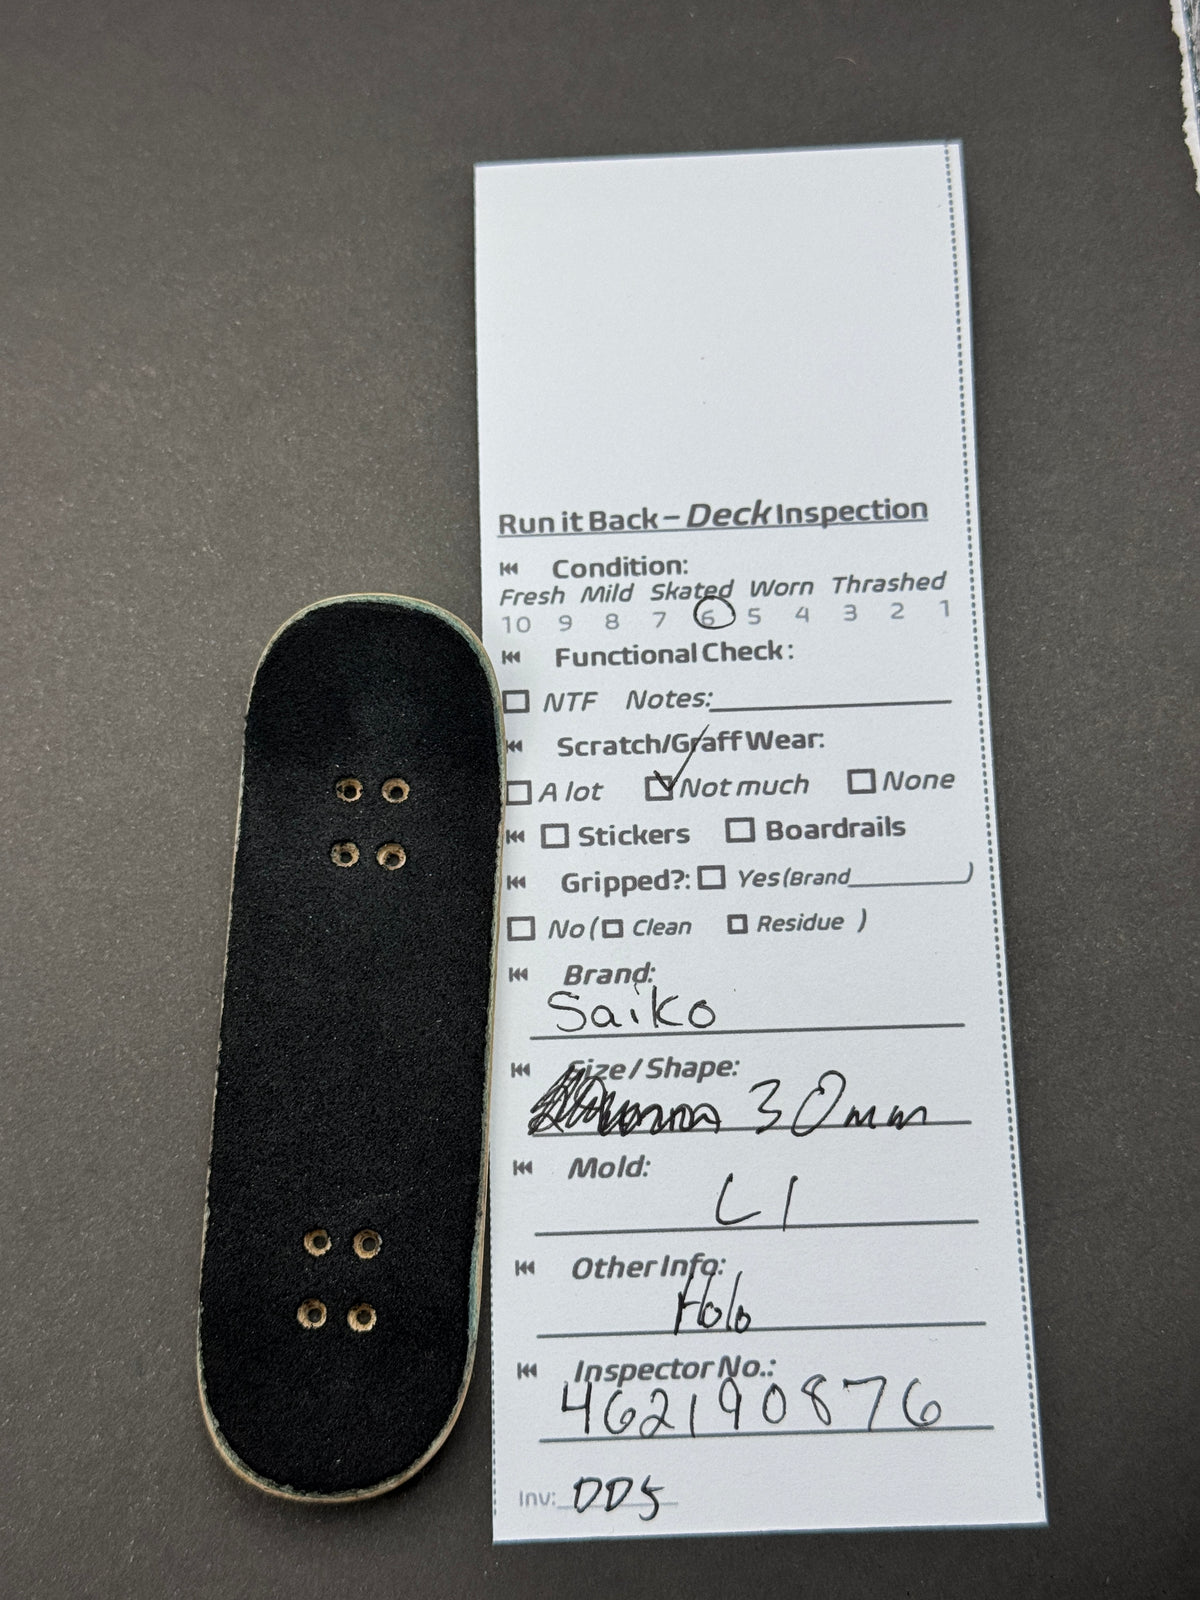 Run it Back – Deck Inspection
Condition:
Fresh Mild Skated Worn Thrashed
10 9 8 7 6 5 4 3 2 1
Functional Check:
NTF Notes:
Scratch/Graff Wear:
A lot Not much None
Stickers Boardrails
Gripped?: Yes (Brand )
No ( Clean Residue )
Brand:
Saiko
Size / Shape:
30mm
Mold:
L1
Other Info:
Holo
Inspector No.:
462190876
Inv: DD5